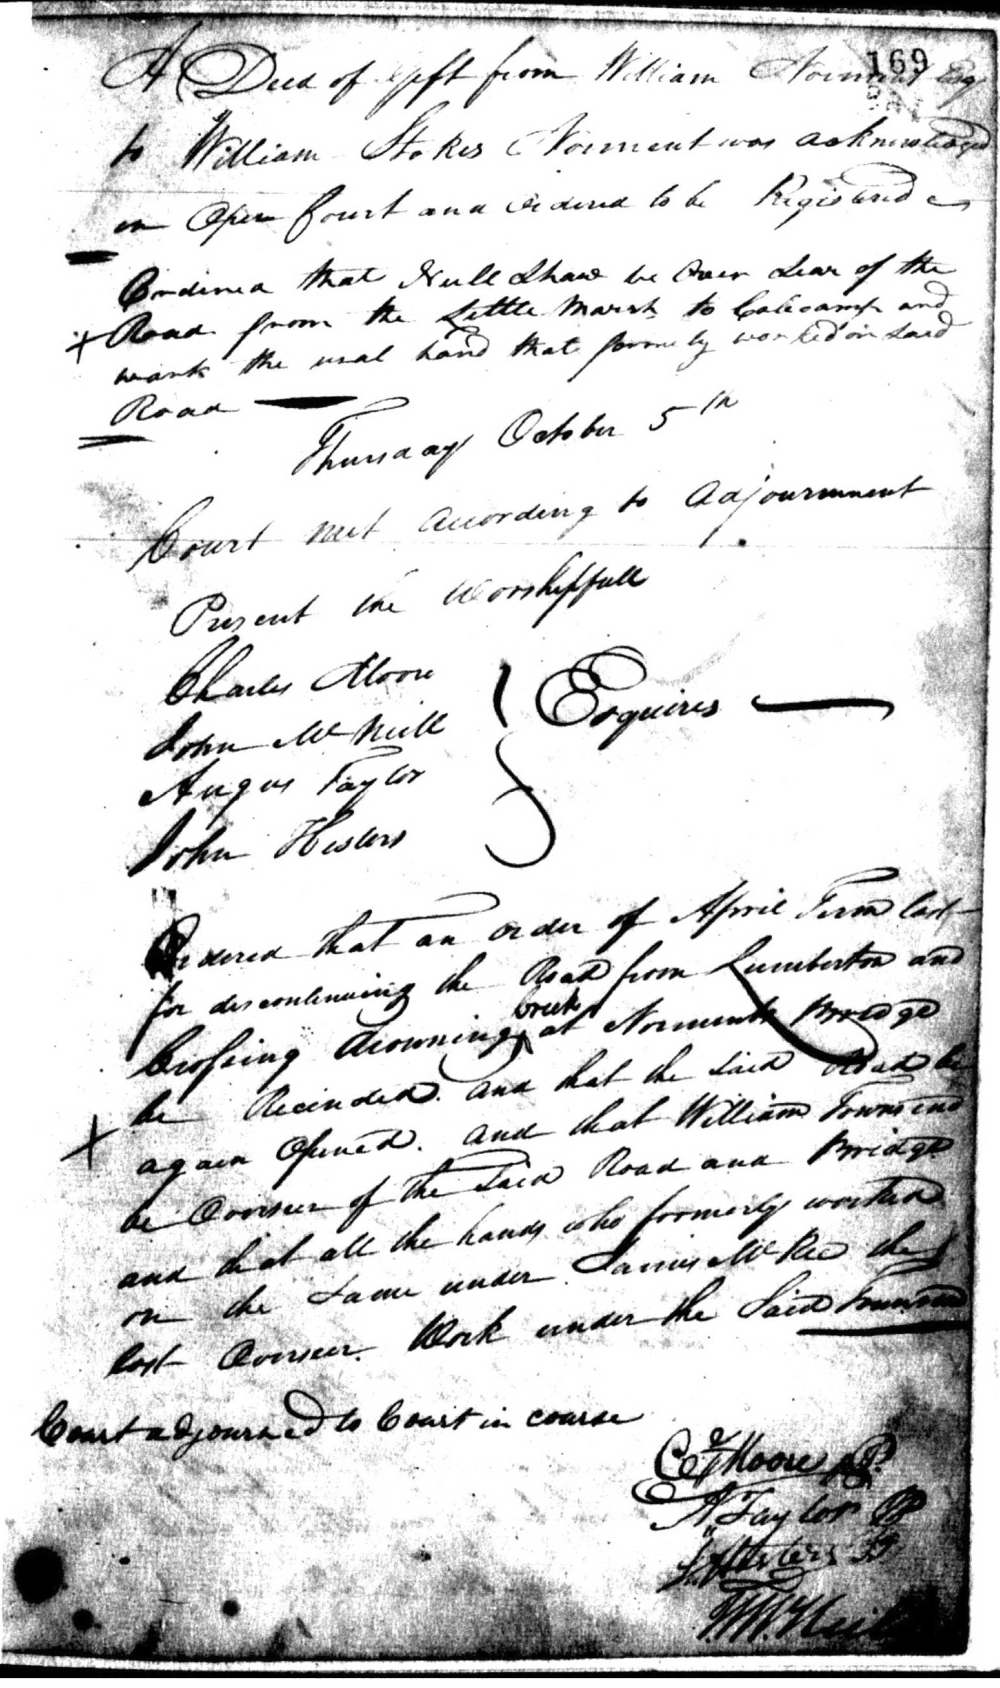 169
A Deed of Gift from William Norment Esq
to William Stokes Norment was acknowledged
in Open Court and ordered to be Registered
Ordered that Neill Shaw be Over Sear of the
Road from the Little Marsh to and
wark the usal hand that formely worked on said
Road
Thursday October 5th
Court met according to adjournment
Present the Worshipfull
Charles Moore
John McNeill
Angus Taylor
John Hesters
Esquires
Ordered that an order of April Term last
for discontinuing the Road from Lumberton and
Crossing Drowning creek at Norments Bridge
be Recinded. and that the said Road be
again Opened. and that William Townsend
be Overseer of the said Road and Bridge
and that all the hands who formerly worked
on the same under James McRee the
last Overseer. Work under the said Townsend
Court adjourned to Court in course
C Moore JP.
A Taylor JP
Jn Hesters JP